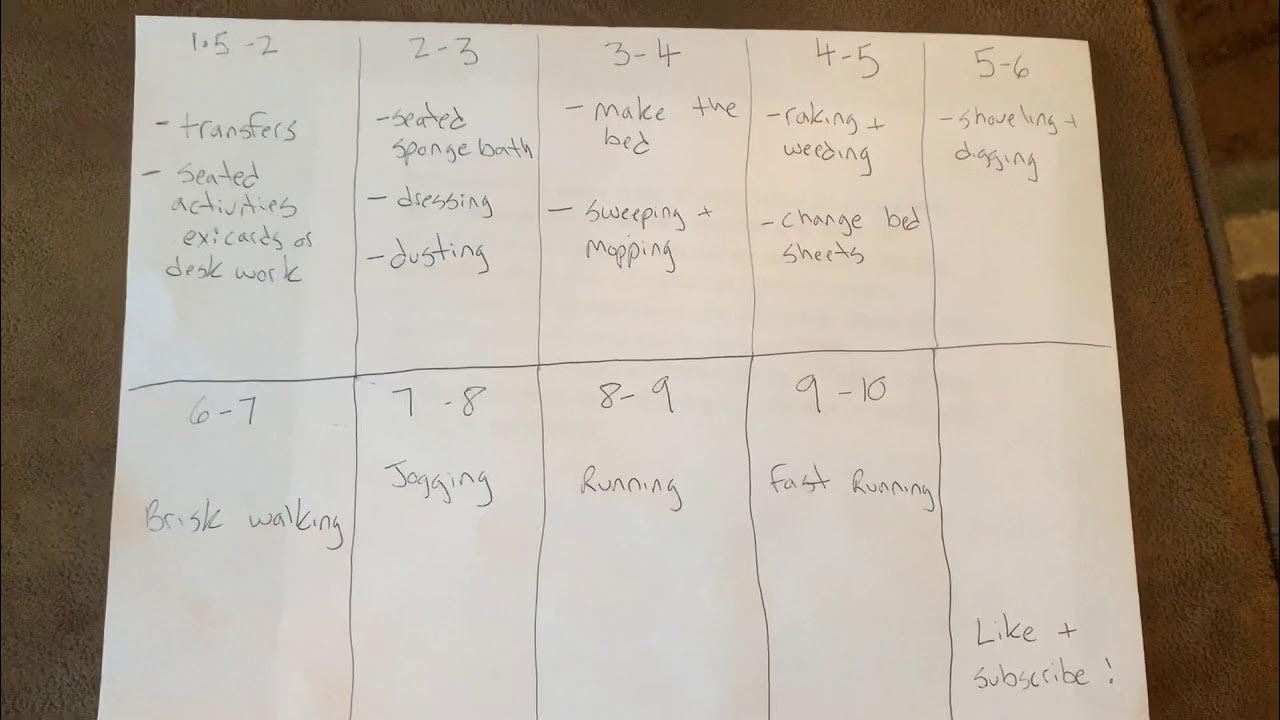 1.5 - 2
- transfers
- seated
activities
exicards or
desk work
2 - 3
- seated
sponge bath
- dressing
- dusting
3 - 4
- make the
bed
- sweeping +
mopping
4 - 5
- raking +
weeding
- change bed
sheets
5 - 6
- shoveling +
digging
6 - 7
Brisk walking
7 - 8
Jogging
8 - 9
Running
9 - 10
fast Running
Like +
subscribe!